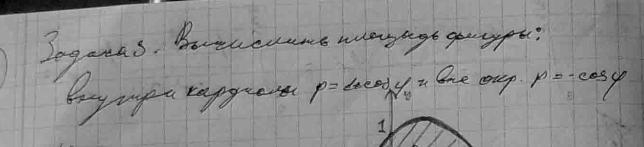 Задача 3. Вычислить площадь фигуры:
внутри кардиоиды и вне окр. ρ = -cosφ
1